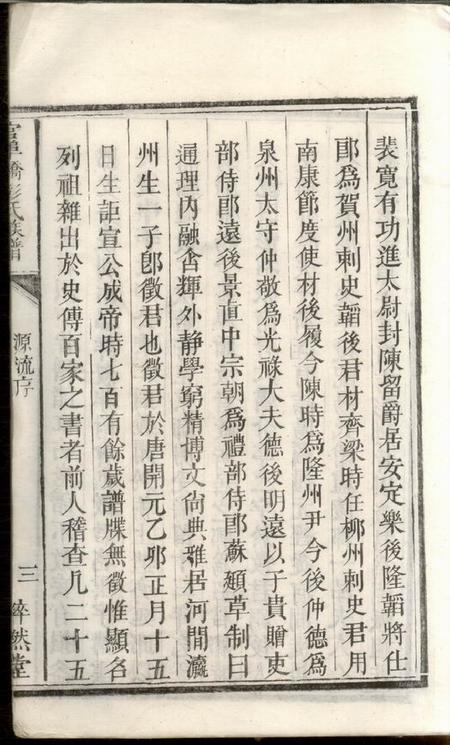 裴寬有功進太尉封陳留爵居安定樂後隆韜將仕
郎爲賀州刺史韜後君材齊梁時任柳州刺史君用
南康節度使材後履今陳時爲隆州尹今後仲德爲
泉州太守仲敬爲光祿大夫德後明遠以子貴贈吏
部侍郎遠後景直中宗朝爲禮部侍郎蘇頲草制曰
通理內融含輝外静學窮精博文尙典雅居河間瀛
州生一子卽徵君也徵君於唐開元乙卯正月十五
日生詎宣公成帝時七百有餘歲譜牒無徵惟顯名
列祖雜出於史傳百家之書者前人稽查凡二十五
橋彭氏族譜
源流序
三
睟然堂